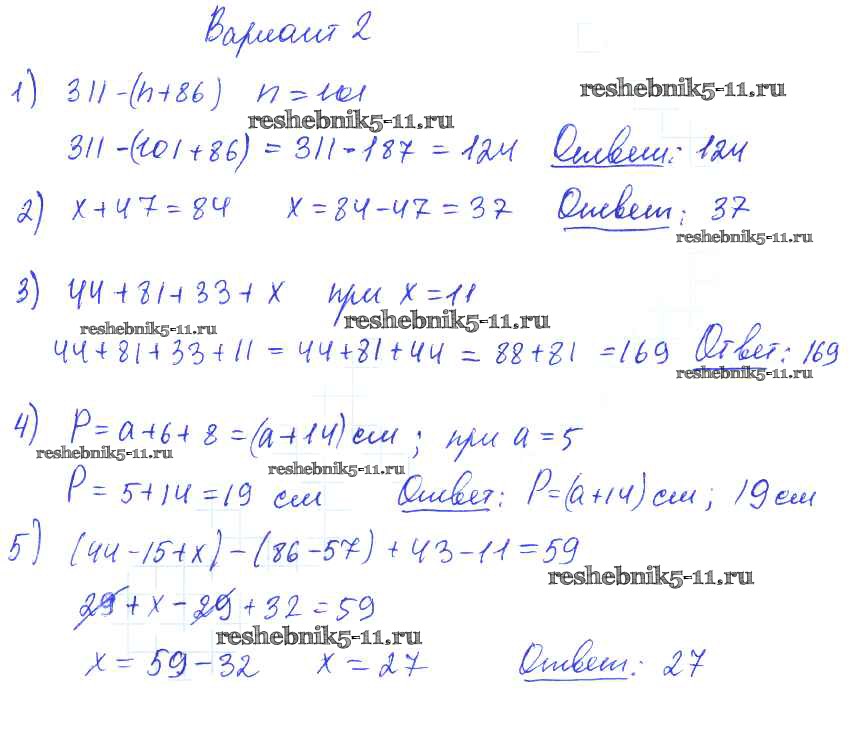 Вариант 2
1) 311-(n+86) n=101
reshebnik5-11.ru
reshebnik5-11.ru
311-(101+86) = 311-187 = 124 Ответ: 124
2) x+47=84 x=84-47=37 Ответ: 37
reshebnik5-11.ru
3) 44+81+33+x при x=11
reshebnik5-11.ru
reshebnik5-11.ru
44+81+33+11 = 44+81+44 = 88+81 =169 Ответ: 169
reshebnik5-11.ru
4) P=a+6+8=(a+14) см; при a=5
reshebnik5-11.ru
reshebnik5-11.ru
P=5+14=19 см Ответ: P=(a+14) см; 19 см
5) (44-15+x)-(86-57)+43-11=59
reshebnik5-11.ru
29+x-29+32=59
reshebnik5-11.ru
x=59-32 x=27 Ответ: 27